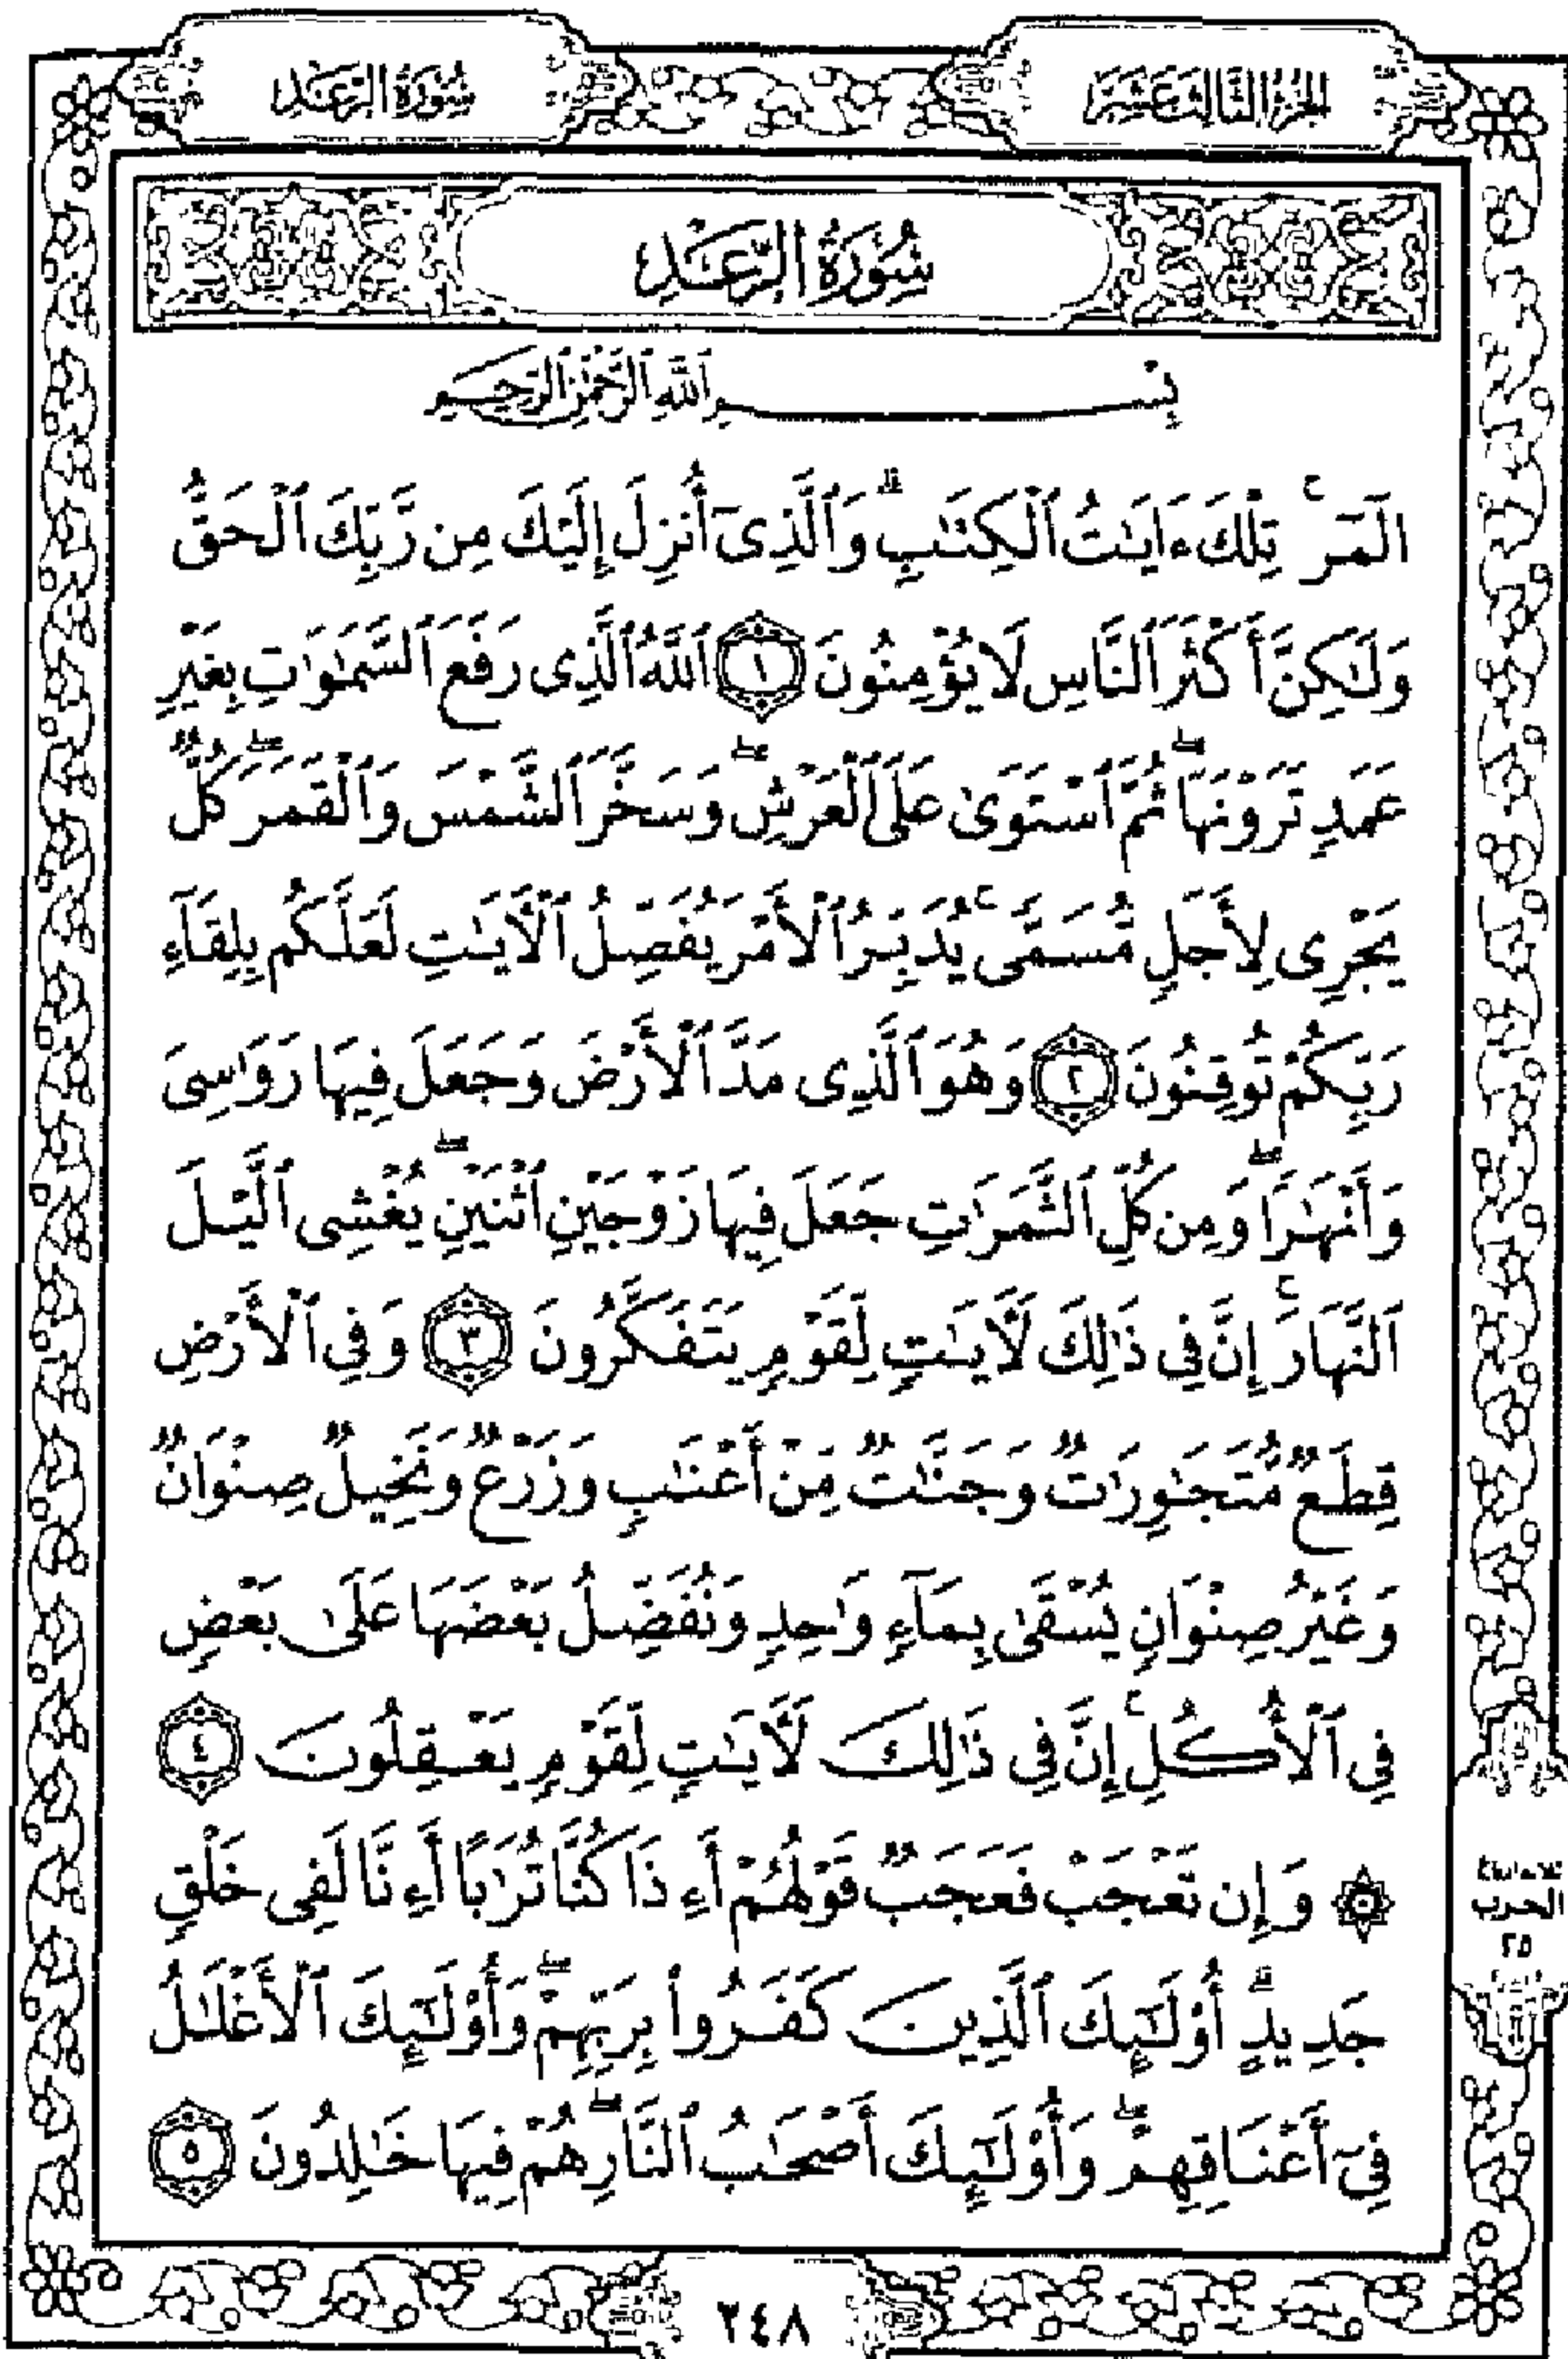 الجزء الثالث عشر
سُورَةُ الرَّعْدِ
سُورَةُ الرَّعْدِ
بِسْمِ ٱللَّهِ ٱلرَّحْمَٰنِ ٱلرَّحِيمِ
الٓمٓرۚ تِلْكَ ءَايَٰتُ ٱلْكِتَٰبِۗ وَٱلَّذِىٓ أُنزِلَ إِلَيْكَ مِن رَّبِّكَ ٱلْحَقُّ
وَلَٰكِنَّ أَكْثَرَ ٱلنَّاسِ لَا يُؤْمِنُونَ ١ ٱللَّهُ ٱلَّذِى رَفَعَ ٱلسَّمَٰوَٰتِ بِغَيْرِ
عَمَدٍ تَرَوْنَهَاۖ ثُمَّ ٱسْتَوَىٰ عَلَى ٱلْعَرْشِۖ وَسَخَّرَ ٱلشَّمْسَ وَٱلْقَمَرَۖ كُلٌّ
يَجْرِى لِأَجَلٍ مُّسَمًّىۚ يُدَبِّرُ ٱلْأَمْرَ يُفَصِّلُ ٱلْءَايَٰتِ لَعَلَّكُم بِلِقَآءِ
رَبِّكُمْ تُوقِنُونَ ٢ وَهُوَ ٱلَّذِى مَدَّ ٱلْأَرْضَ وَجَعَلَ فِيهَا رَوَٰسِىَ
وَأَنْهَٰرًاۖ وَمِن كُلِّ ٱلثَّمَرَٰتِ جَعَلَ فِيهَا زَوْجَيْنِ ٱثْنَيْنِۖ يُغْشِى ٱلَّيْلَ
ٱلنَّهَارَۚ إِنَّ فِى ذَٰلِكَ لَءَايَٰتٍ لِّقَوْمٍ يَتَفَكَّرُونَ ٣ وَفِى ٱلْأَرْضِ
قِطَعٌ مُّتَجَٰوِرَٰتٌ وَجَنَّٰتٌ مِّنْ أَعْنَٰبٍ وَزَرْعٌ وَنَخِيلٌ صِنْوَانٌ
وَغَيْرُ صِنْوَانٍ يُسْقَىٰ بِمَآءٍ وَٰحِدٍ وَنُفَضِّلُ بَعْضَهَا عَلَىٰ بَعْضٍ
فِى ٱلْأُكُلِۚ إِنَّ فِى ذَٰلِكَ لَءَايَٰتٍ لِّقَوْمٍ يَعْقِلُونَ ٤
۞ وَإِن تَعْجَبْ فَعَجَبٌ قَوْلُهُمْ أَءِذَا كُنَّا تُرَٰبًا أَءِنَّا لَفِى خَلْقٍ
جَدِيدٍۗ أُو۟لَٰٓئِكَ ٱلَّذِينَ كَفَرُوا۟ بِرَبِّهِمْۖ وَأُو۟لَٰٓئِكَ ٱلْأَغْلَٰلُ
فِىٓ أَعْنَاقِهِمْۖ وَأُو۟لَٰٓئِكَ أَصْحَٰبُ ٱلنَّارِۖ هُمْ فِيهَا خَٰلِدُونَ ٥
الحزب
٢٥
٢٤٨